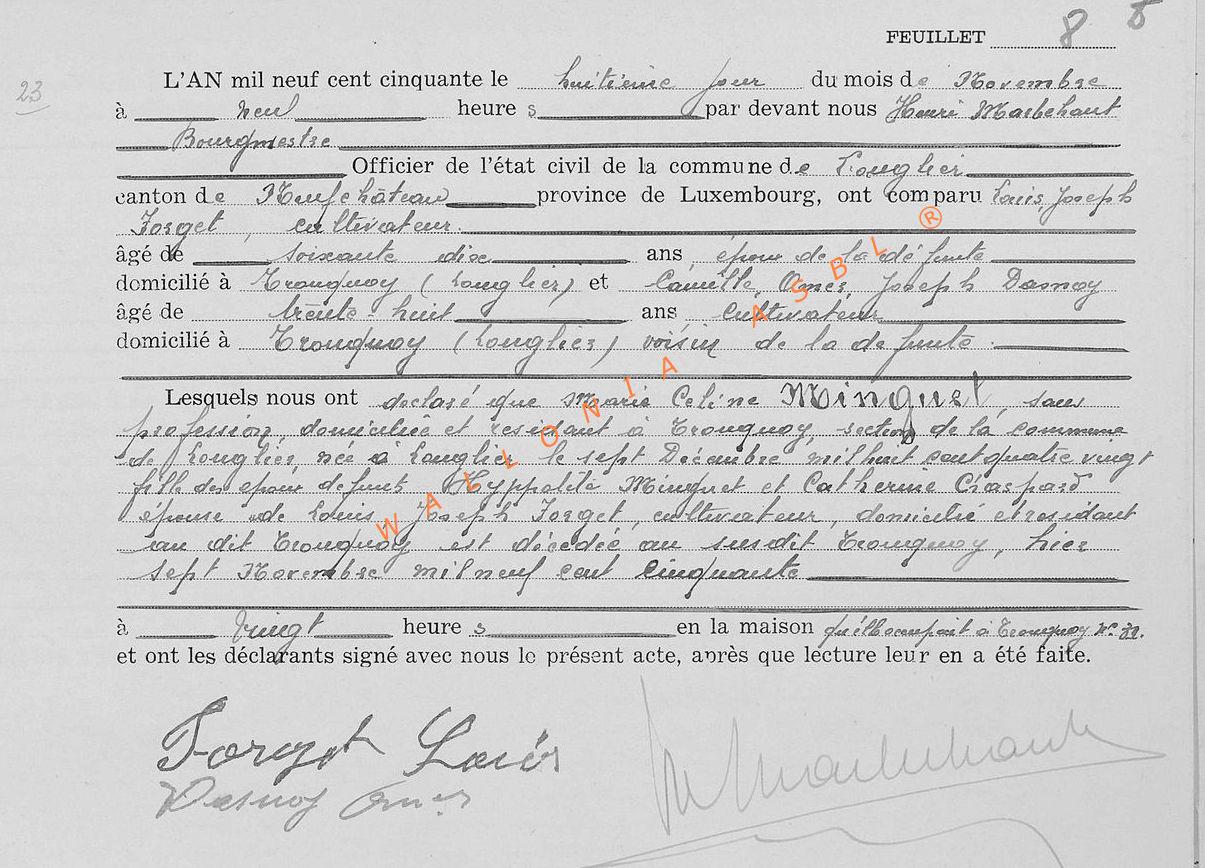 FEUILLET 8
23
L'AN mil neuf cent cinquante le huitième jour du mois de Novembre
à neuf heures par devant nous Henri Marbehant
Bourgmestre
Officier de l'état civil de la commune de Longlier
canton de Neufchâteau province de Luxembourg, ont comparu Louis, Joseph
Forget, cultivateur.
âgé de soixante dix ans, époux de la défunte
domicilié à Tronquoy (Longlier) et Camille, Omer, Joseph Dasnoy
âgé de trente-huit ans, cultivateur
domicilié à Tronquoy (Longlier) voisin de la defunte.
Lesquels nous ont déclaré que Marie Celine Minguet, sans
profession, domiciliée et residant à Tronquoy, section de la commune
de Longlier, née à Longlier le sept Décembre mil huit cent quatre vingt
fille des epoux defunts Hyppolite Minguet et Catherine Chaspard
épouse de Louis, Joseph Forget, cultivateur, domicilié et residant
au dit Tronquoy est décédée au susdit Tronquoy, hier
sept Novembre mil neuf cent cinquante
à vingt heures en la maison qu'elle occupait à Tronquoy N°
et ont les déclarants signé avec nous le présent acte, après que lecture leur en a été faite.
Forget Louis
Dasnoy Omer
H Marbehant
WALLONIA ASBL ®